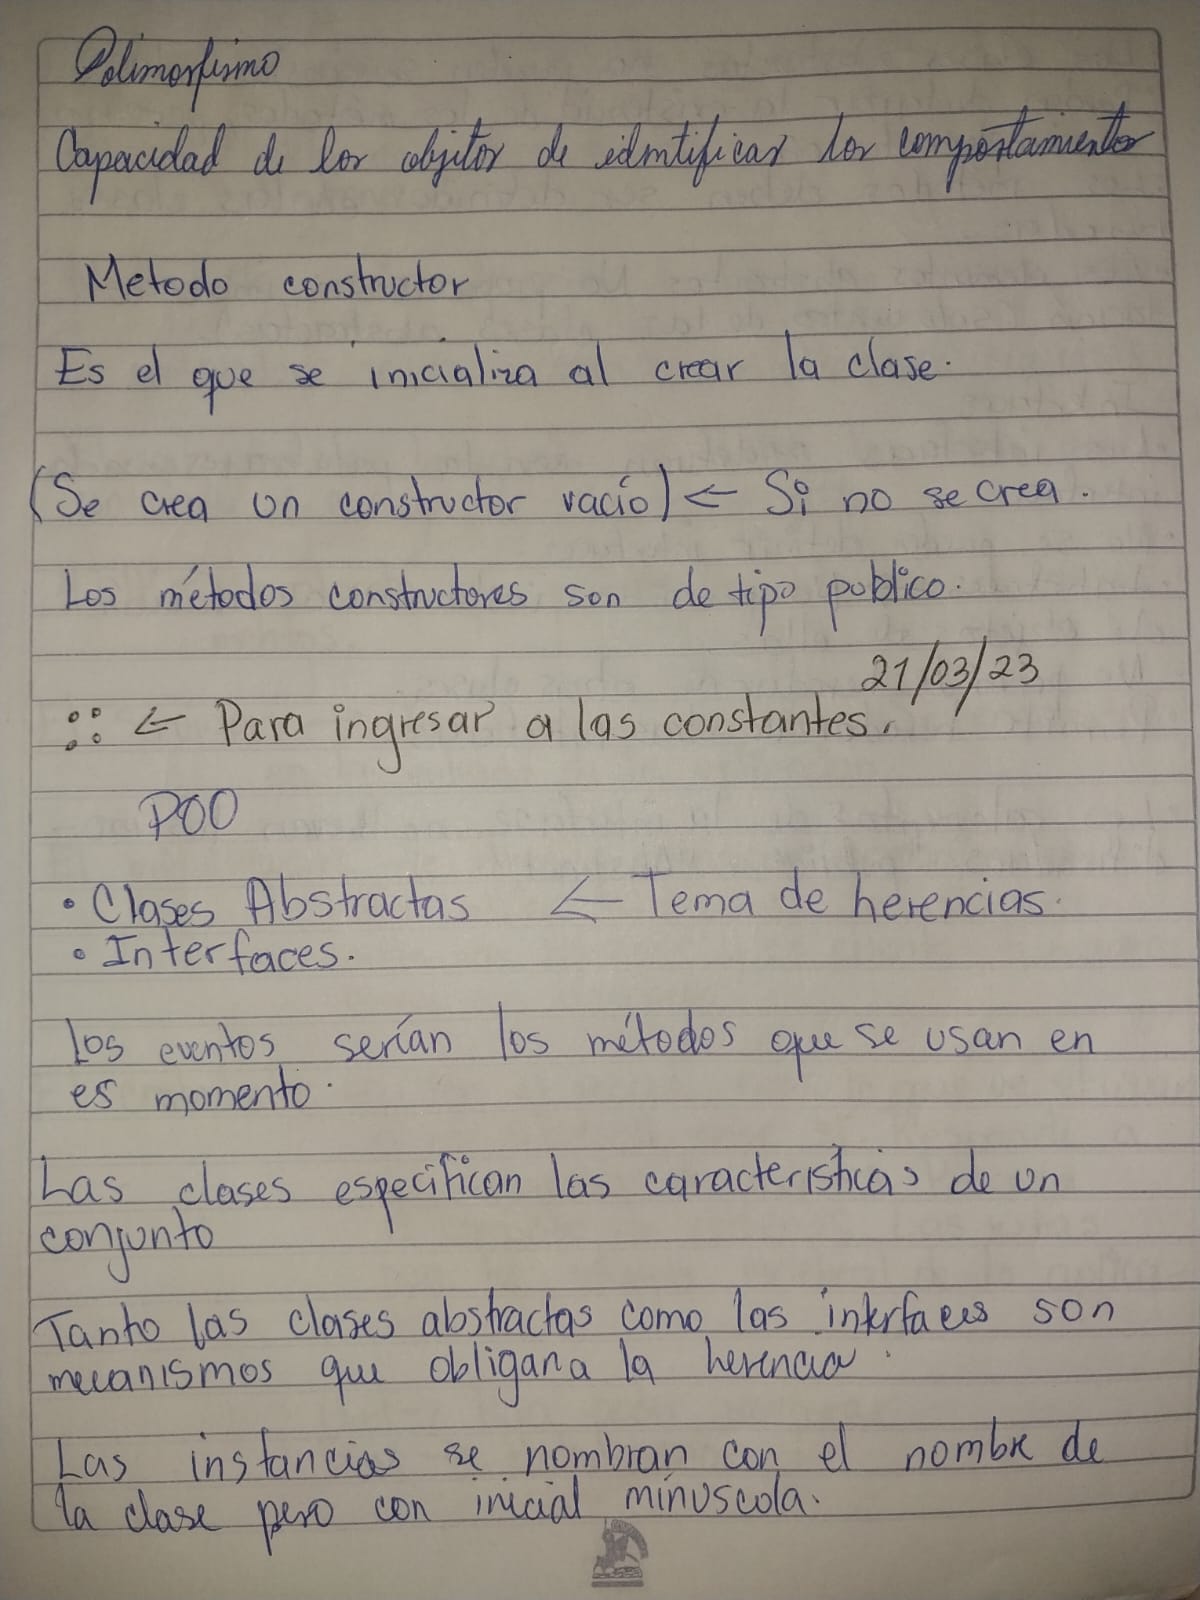 Polimorfismo
Capacidad de los objetos de identificar los comportamientos
Metodo constructor
Es el que se inicializa al crear la clase.
(Se crea un constructor vacío) ← Si no se crea.
Los métodos constructores son de tipo publico.
21/03/23
:: ← Para ingresar a las constantes.
POO
• Clases Abstractas ← Tema de herencias.
• Interfaces.
los eventos serían los métodos que se usan en
es momento.
Las clases especifican las características de un
conjunto
Tanto las clases abstractas como las interfaces son
mecanismos que obligan a la herencia.
Las instancias se nombran con el nombre de
la clase pero con inicial minúscola.